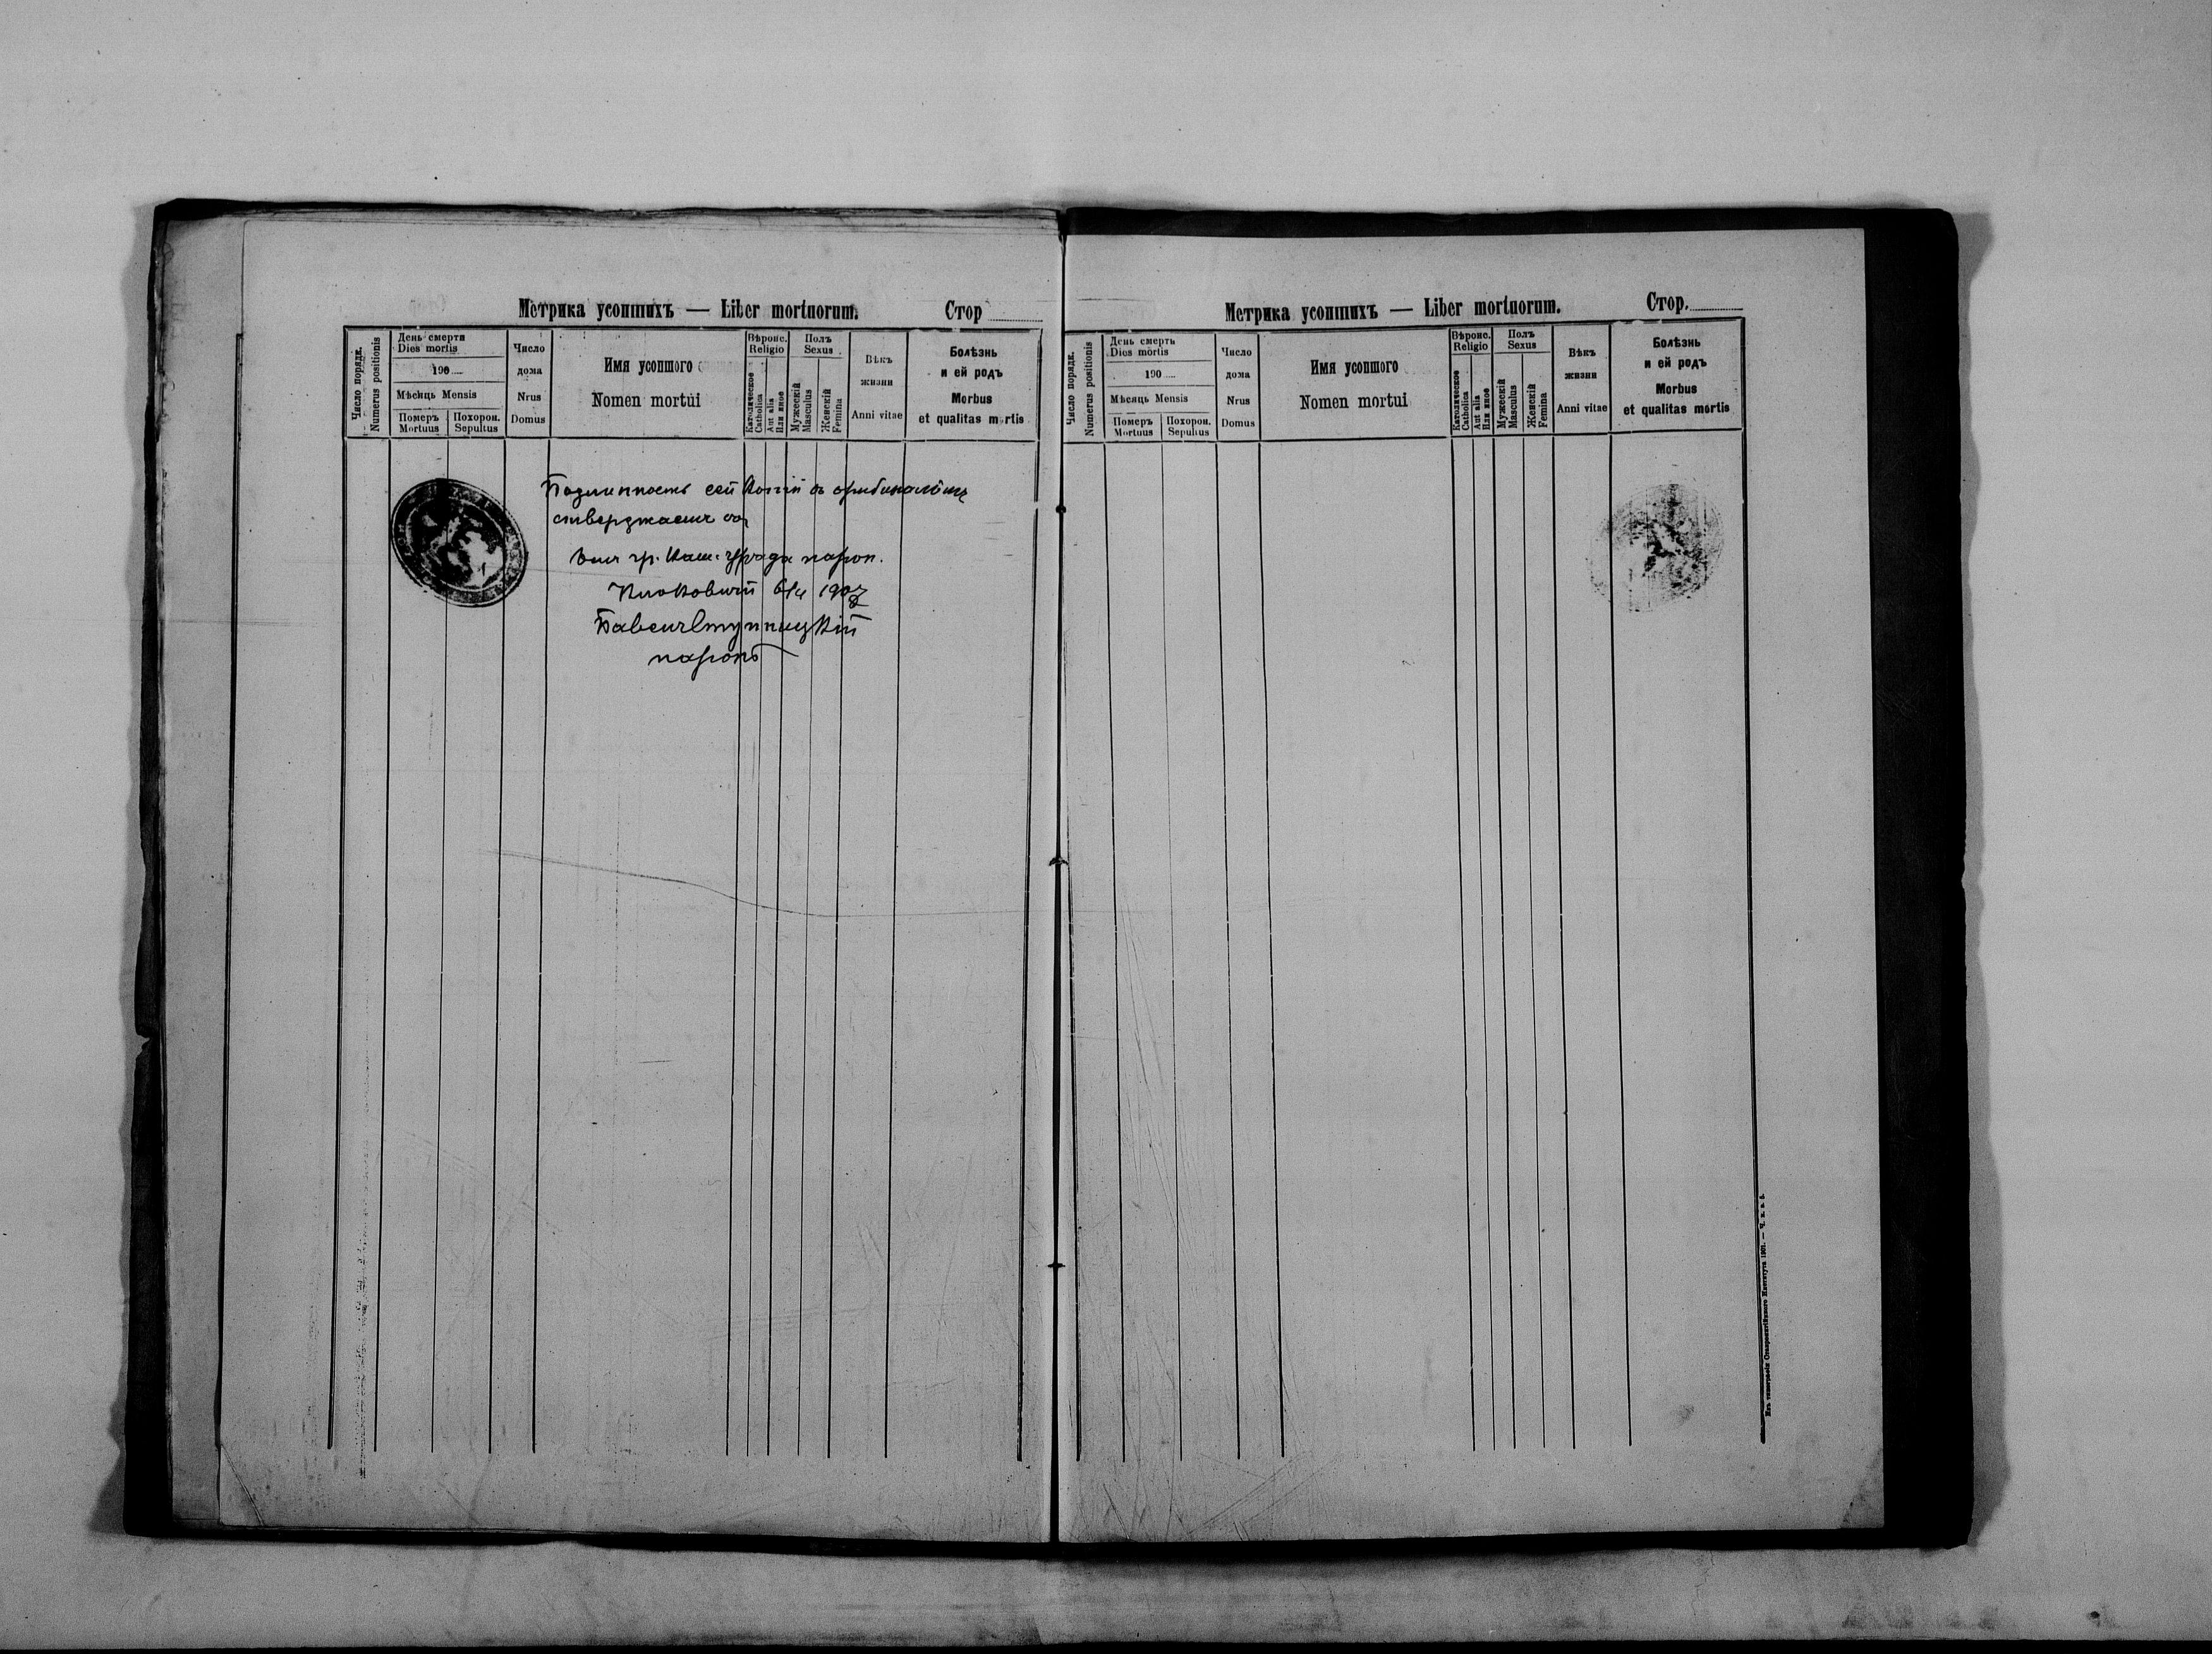 Метрика усопшихъ — Liber mortuorum.
Стор
Число порядк.
Numerus positionis
День смерти
Dies mortis
190
Мѣсяць Mensis
Померъ
Mortuus
Похорон.
Sepultus
Число
дома
Nrus
Domus
Имя усопшого
Nomen mortui
Вѣроис.
Religio
Католическое
Catholica
Aut alia
Или иное
Полъ
Sexus
Мужескій
Masculus
Женскій
Femina
Вѣкъ
жизни
Anni vitae
Болѣзнь
и ей родъ
Morbus
et qualitas mortis
сей копіи съ
стверджаеть ся
гр. уряда парох.
6/4 1907
парохъ
Метрика усопшихъ — Liber mortuorum.
Стор.
Число порядк.
Numerus positionis
День смерть
Dies mortis
190
Мѣсяць Mensis
Померъ
Mortuus
Похорон.
Sepultus
Число
дома
Nrus
Domus
Имя усопшого
Nomen mortui
Вѣроис.
Religio
Католическое
Catholica
Aut alia
Или иное
Полъ
Sexus
Мужескій
Masculus
Женскій
Femina
Вѣкъ
жизни
Anni vitae
Болѣзнь
и ей родъ
Morbus
et qualitas mortis
Изъ типографіи Ставропигійского Института 1901.